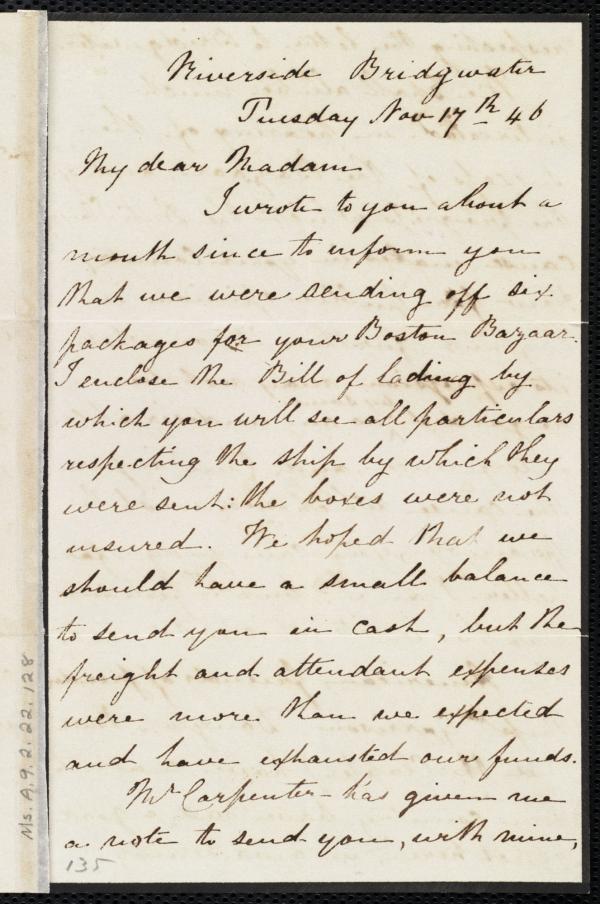 Riverside Bridgwater
Tuesday Nov 17th 46
My dear Madam
I wrote to you about a
month since to inform you
that we were sending off six
packages for your Boston Bazaar.
I enclose the Bill of lading by
which you will see all particulars
respecting the ship by which they
were sent: the boxes were not
insured. We hoped that we
should have a small balance
to send you in cash, but the
freight and attendant expenses
were more than we expected
and have exhausted our funds.
Mr Carpenter has given me
a note to send you, with mine,
135
Ms. A.9.2.22.128